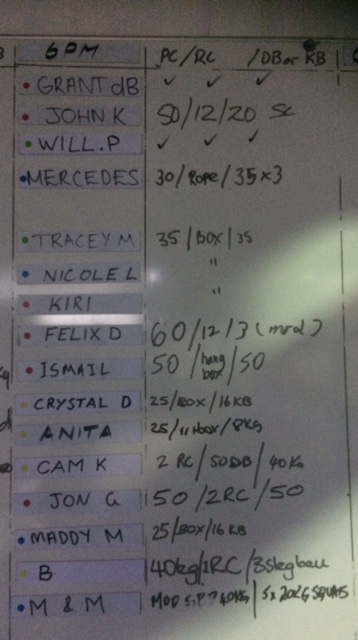 6PM PC/RC /DB or KB
GRANT dB ✓ ✓ ✓
JOHN.K 50/12/20 SC
WILL.P ✓ ✓ ✓
MERCEDES 30/ROPE/35x3
TRACEY M 35/BOX/35
NICOLE L "
KIRI "
FELIX D 60/12/3(mrd)
ISMAIL 50/hang box/50
CRYSTAL D 25/BOX/16KB
ANITA 25/11box/8KG
CAM K 2 RC/50DB/40KG
JON G 50/2RC/50
MADDY M 25/BOX/16 KB
B 40kg/1RC/35kg
M & M MOD 40KG / 5x 20KG SQUATS